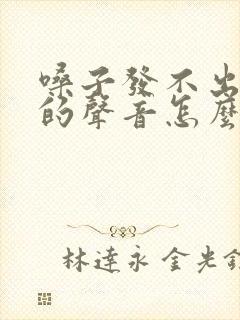 嗓子發不出
的聲音怎麼
林達永 金光